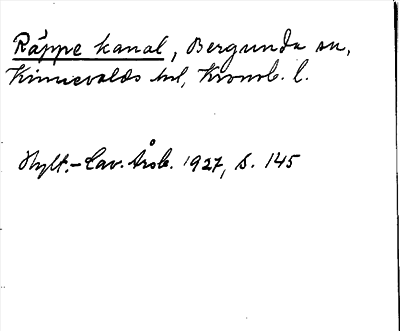 Räppe kanal, Bergunda sn,
Kinnevalds hd, Kronob. l.
Hylt.-Cav. årsb. 1927, s. 145